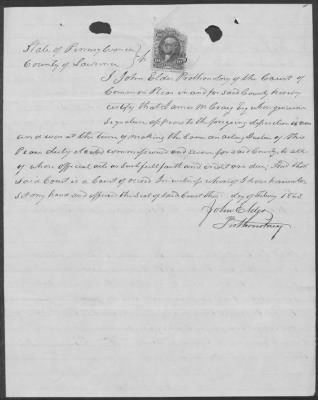 State of Pennsylvania
County of Lawrence
I John Elder Prothonotary of the Court of
Common Pleas in and for said County hereby
certify that James M. Esqr whose genuine
signature appears to the foregoing deposition is now
and was at the time of making the same an acting Justice of the
Peace duly elected commissioned and sworn for said County to all
of whose official acts as such full faith and credit are due, And that
said Court is a Court of record In witness whereof I have hereunto
set my hand and affixed the seal of said Court this day of 1863
John Elder
Prothonotary